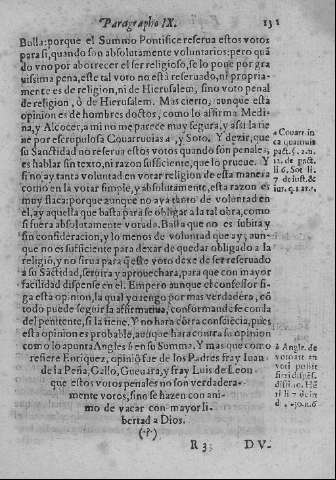 Paragrapho IX. 131
Bulla: porque el Summo Pontifice reserua estos votos
para si, quando son absolutamente voluntarios: pero quã
do vno por aborrecer el ser religioso, se lo pone por gra
uissima pena, este tal voto no està reseruado, ni propria-
mente es de religion, ni de Hierusalem, sino voto penal
de religion, ò de Hierusalem. Mas cierto, aunque esta
opinion es de hombres doctos, como lo afirma Medi-
na, y Alcocer, a mi no me parece muy segura, y assi la tie
ne por escrupulosa Couarruuias a, y Soto. Y dezir, que
su Sanctidad no reserua estos votos quando son penales,
es hablar sin texto, ni razon sufficiente, que lo prueue. Y
si no ay tanta voluntad en votar religion de esta manera
como en la votar simple, y absolutamente, esta razon es
muy flaca: porque aunque no aya tanto de voluntad en
el, ay aquella que basta para se obligar a la tal obra, como
si fuera absolutamente votada. Basta que no es subita y
sin consideracion, y lo menos de voluntad que ay, aun-
que no es sufficiente para dexar de quedar obligado a la
religiõ, y no sirua para q̃ este voto dexe de ser reseruado
a su Sãctidad, seruira y aprouechara, para que con mayor
facilidad dispense en el. Empero aunque el confessor si-
ga esta opinion, la qual yo tengo por mas verdadera, cõ
todo puede seguir la affirmatiua, conformandose con la
del penitente, si la tiene. Y no hara cõtra consciẽcia, pues
esta opinion es probable, aunque hara contra su opinion
como lo apunta Angles b en su Summa. Y mas que como
refiere Enriquez, opiniõ fue de los Padres fray Iuan
de la Peña, Gallo, Gueuara, y fray Luis de Leon
que estos votos penales no son verdadera-
mente votos, sino se hazen con ani-
mo de vacar con mayor li-
bertad a Dios.
a Couarr. in
c. quamuis
pact.
lib. 6. Sot. li.
7. de iust. &
ius. q.
b Angle. de
R 3 D V-